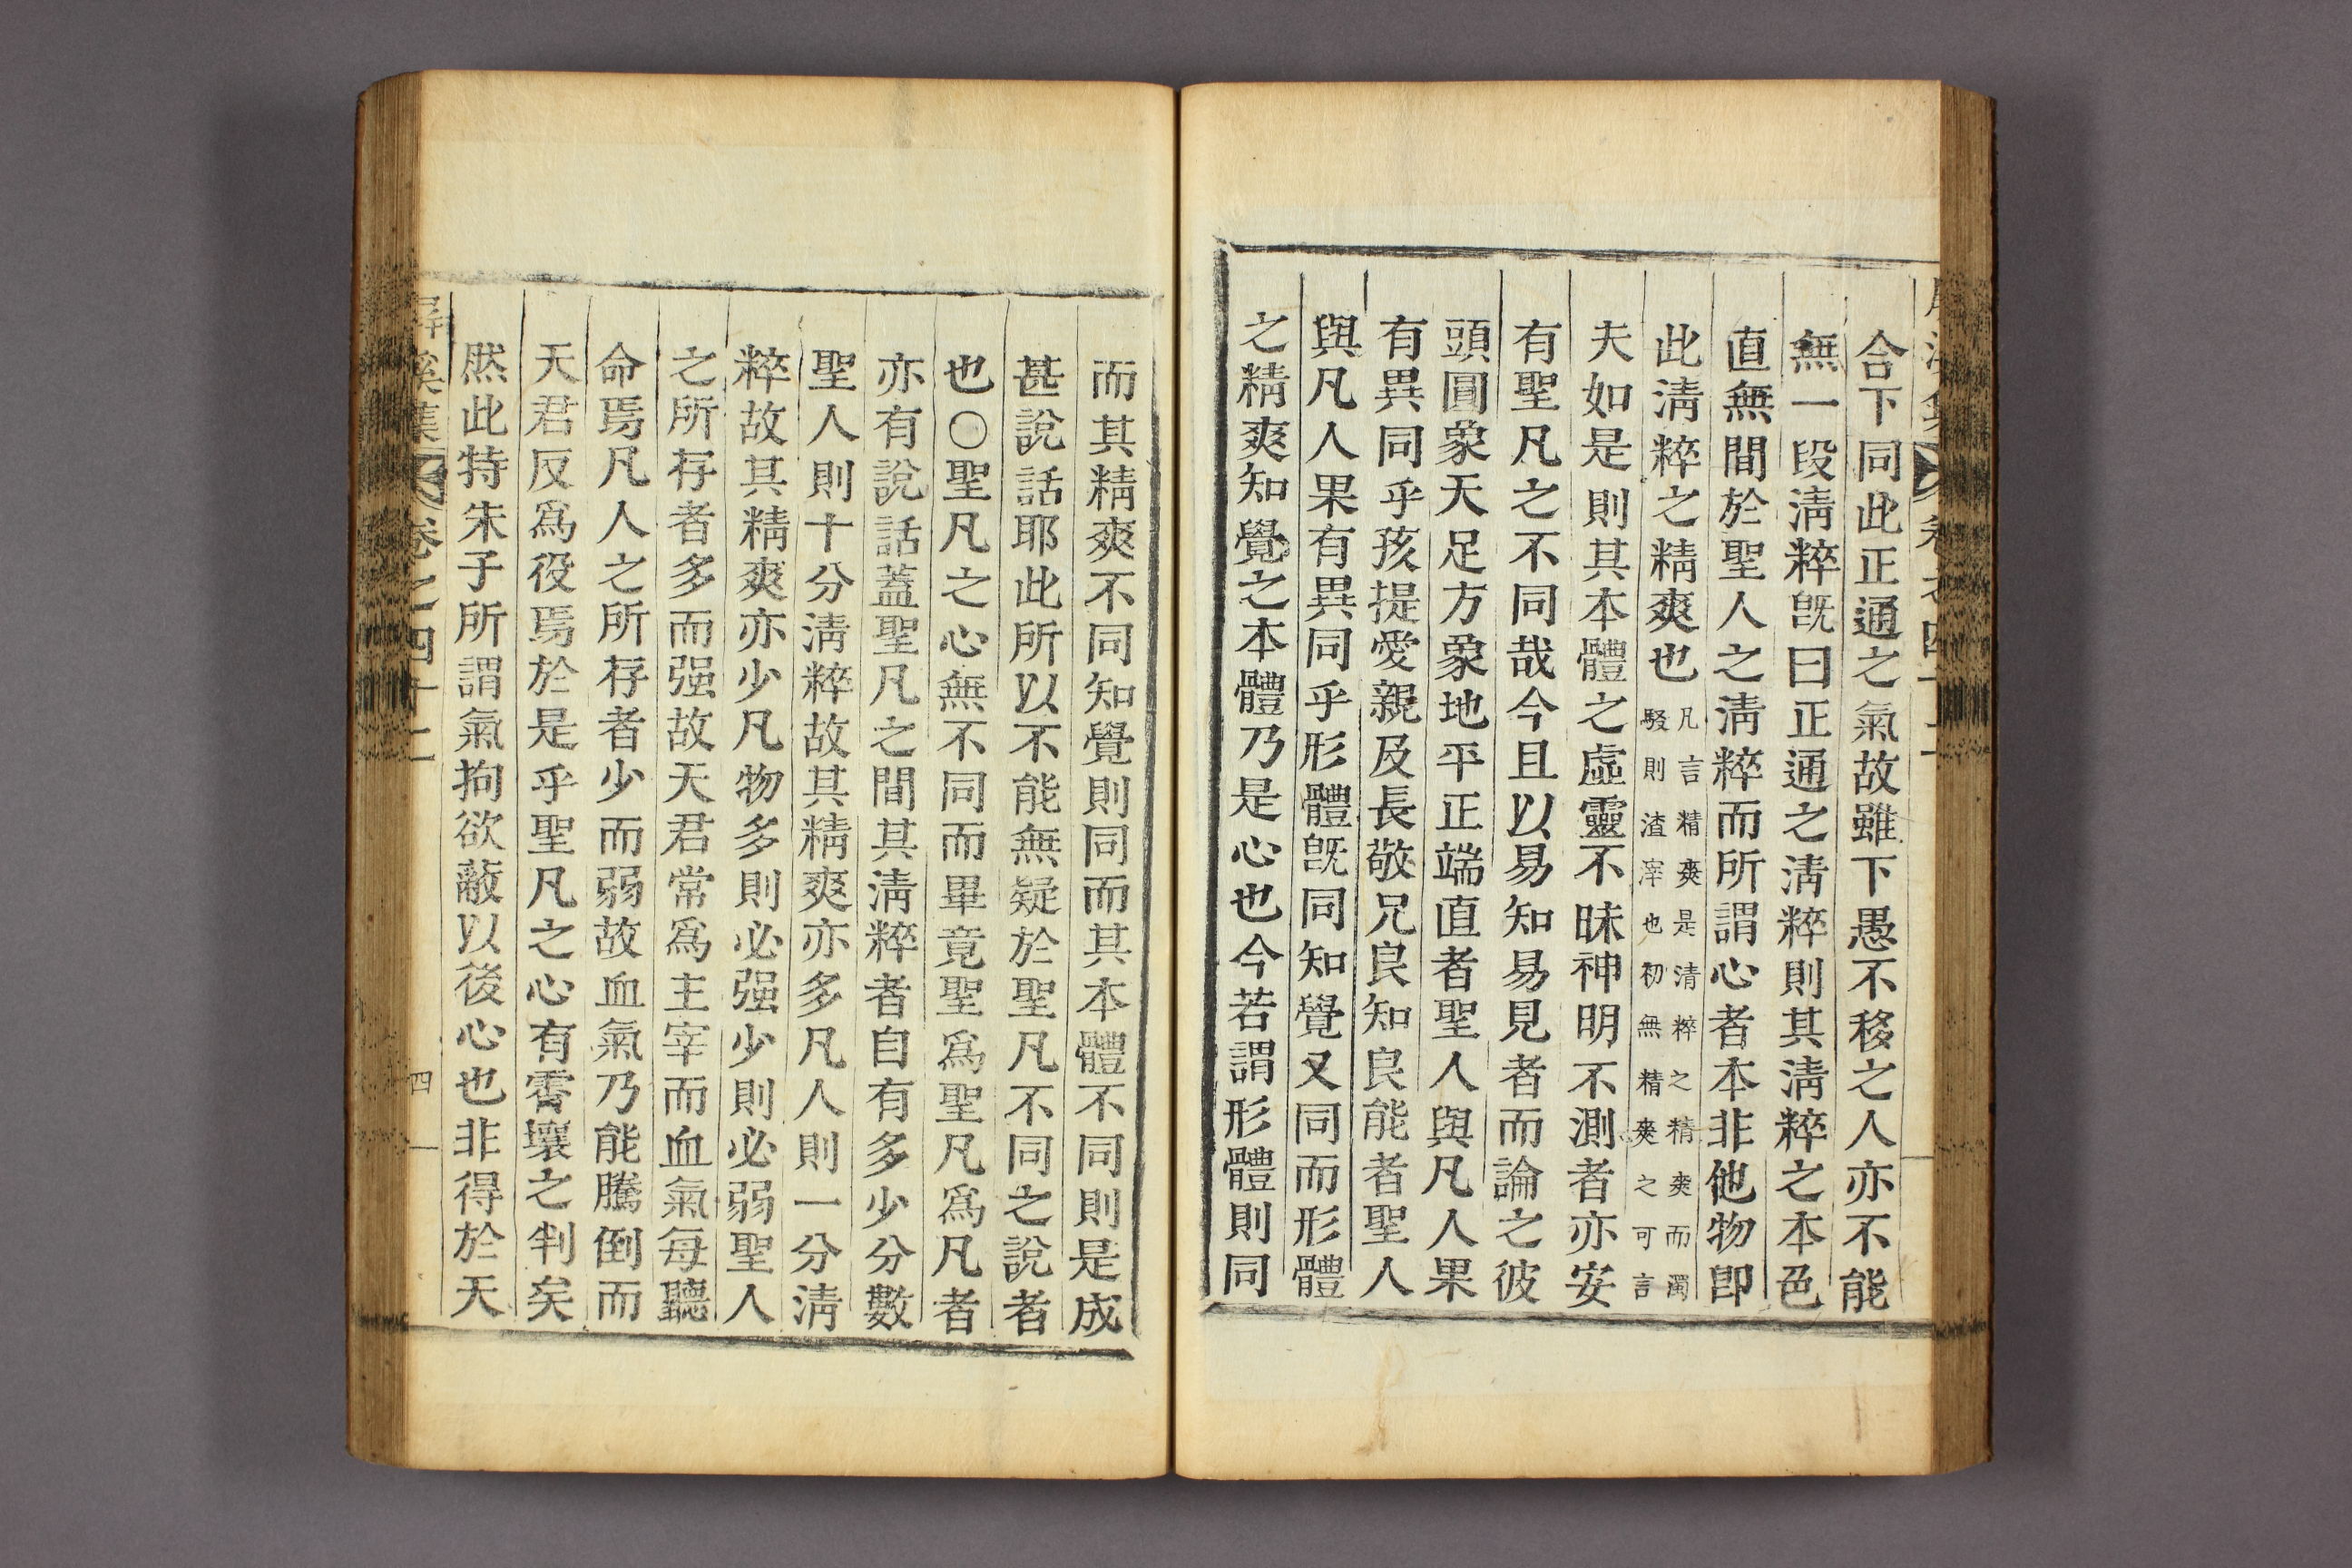 合下同此正通之氣故雖下愚不移之人亦不能
無一段淸粹旣曰正通之淸粹則其淸粹之本色
直無間於聖人之淸粹而所謂心者本非他物卽
此淸粹之精爽也凡言精爽是清粹之精爽而濁
駁則渣滓也初無精爽之可言
夫如是則其本體之虛靈不昧神明不測者亦安
有聖凡之不同哉今且以易知易見者而論之彼
頭圓象天足方象地平正端直者聖人與凡人果
有異同乎孩提愛親及長敬兄良知良能者聖人
與凡人果有異同乎形體旣同知覺又同而形體
之精爽知覺之本體乃是心也今若謂形體則同
而其精爽不同知覺則同而其本體不同則是成
甚說話耶此所以不能無疑於聖凡不同之說者
也○聖凡之心無不同而畢竟聖爲聖凡爲凡者
亦有說話蓋聖凡之間其淸粹者自有多少分數
聖人則十分淸粹故其精爽亦多凡人則一分淸
粹故其精爽亦少凡物多則必强少則必弱聖人
之所存者多而强故天君常爲主宰而血氣每聽
命焉凡人之所存者少而弱故血氣乃能騰倒而
天君反爲役焉於是乎聖凡之心有霄壤之判矣
然此特朱子所謂氣拘欲蔽以後心也非得於天
屛溪集 卷之四十二 四